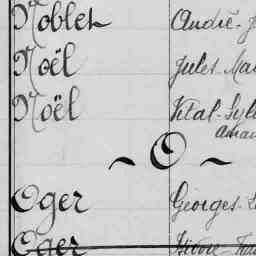 Noblet André-J
Noël Jules-Ma
Noël Vital-Sylv
~ O ~
Oger Georges-
Oger Pierre-Fra